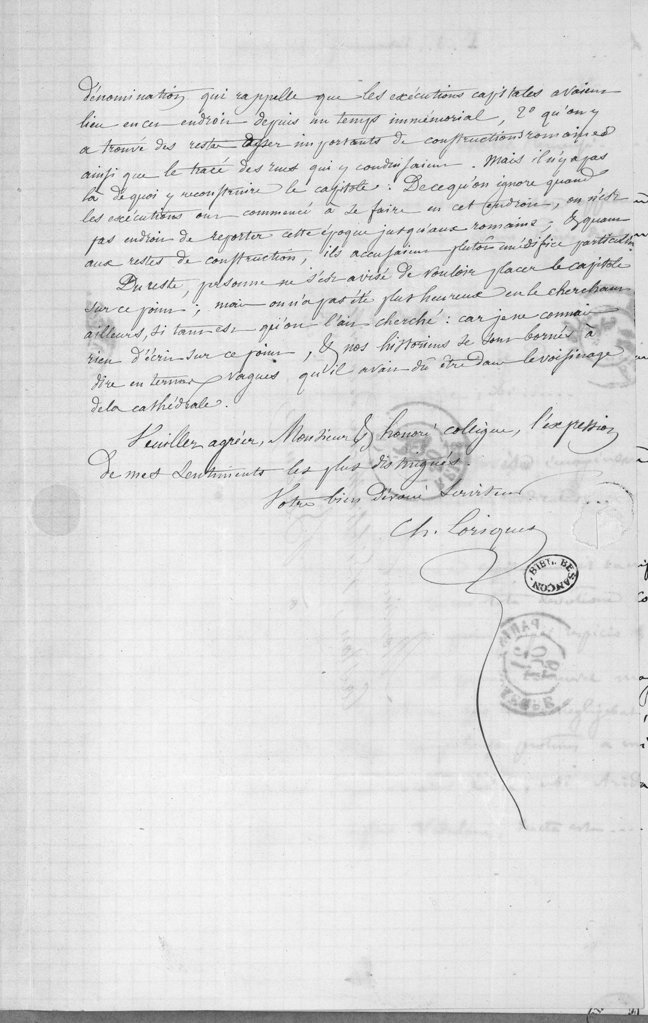 dénomination qui rappelle que les exécutions capitales avaient
lieu en cet endroit depuis un temps immémorial, 2º qu'on y
a trouvé des restes assez importants de constructions romaines
ainsi que le tracé des rues qui y conduisaient. Mais il n'y a pas
là de quoi y reconstruire le capitole. De ce qu'on ignore quand
les exécutions ont commencé à se faire en cet endroit, on n'est
pas en droit de reporter cette époque jusqu'aux romains; & quant
aux restes de construction, ils accusaient plutôt un édifice particulier
Du reste, personne ne s'est avisé de vouloir placer le capitole
sur ce point; mais on n'a pas été plus heureux en le cherchant
ailleurs, si tant est qu'on l'ait cherché: car je ne connais
rien d'écrit sur ce point, & nos historiens se sont bornés à
dire en termes vagues qu'il avait dû être dans le voisinage
de la cathédrale.
Veuillez agréer, Monsieur & honoré collègue, l'expression
de mes sentiments les plus distingués.
Votre bien dévoué serviteur
Ch. Loriquet
BIBL. BESANÇON
PARIS